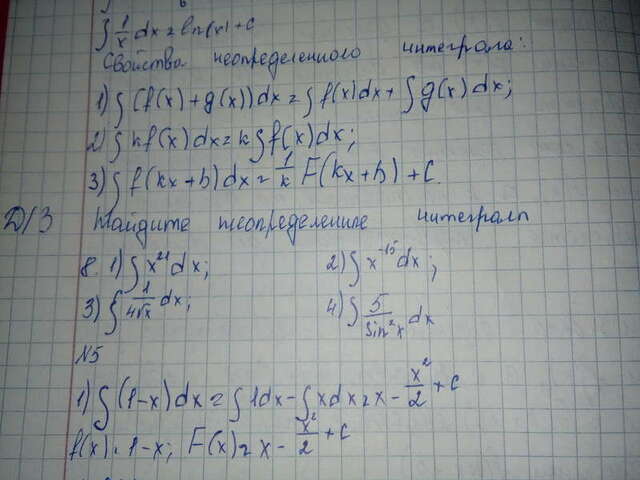 ∫ 1/x dx = ln(x) + C
Свойства неопределенного интеграла:
1) ∫ (f(x) + g(x)) dx = ∫ f(x) dx + ∫ g(x) dx;
2) ∫ kf(x) dx = k ∫ f(x) dx;
3) ∫ f(kx + b) dx = 1/k F(kx + b) + C
Д/З Найдите неопределенные интегралы
8. 1) ∫ x²¹ dx; 2) ∫ x⁻¹⁵ dx;
3) ∫ 1/4√x dx; 4) ∫ 5/sin²x dx
N5
1) ∫ (1-x) dx = ∫ 1dx - ∫ xdx = x - x²/2 + C
f(x) = 1-x; F(x) = x - x²/2 + C